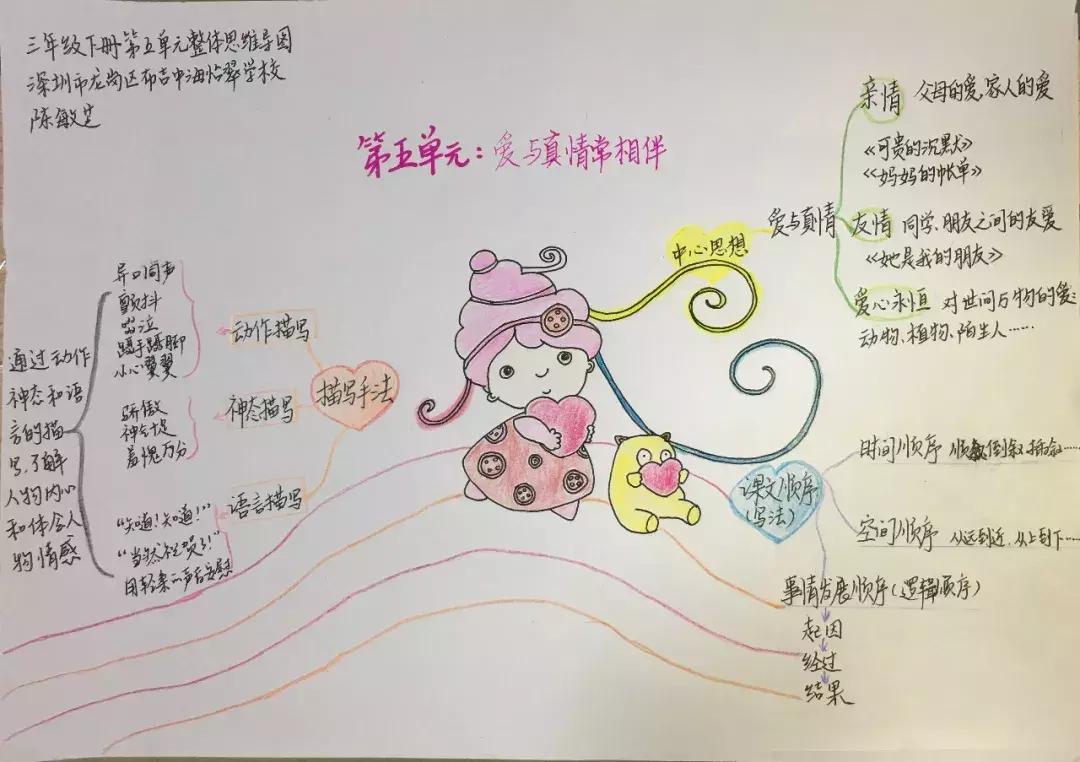 三年级下册第五单元整体思维导图
深圳市龙岗区布吉中海怡翠学校
陈敏芝
第五单元：爱与真情常相伴
中心思想
爱与真情
亲情 父母的爱、家人的爱
《可贵的沉默》
《妈妈的帐单》
友情 同学、朋友之间的友爱
《她是我的朋友》
爱心永恒 对世间万物的爱：
动物、植物、陌生人……
课文顺序
（写法）
时间顺序 顺叙 倒叙 插叙……
空间顺序 从远到近、从上到下……
事情发展顺序（逻辑顺序）
起因
经过
结果
描写手法
动作描写
异口同声
颤抖
啜泣
蹑手蹑脚
小心翼翼
神态描写
骄傲
神气十足
羞愧万分
语言描写
“知道！知道！”
“当然祝贺了！”
用轻柔的声音安慰
通过动作
神态和语
言的描
写，了解
人物内心
和体会人
物情感